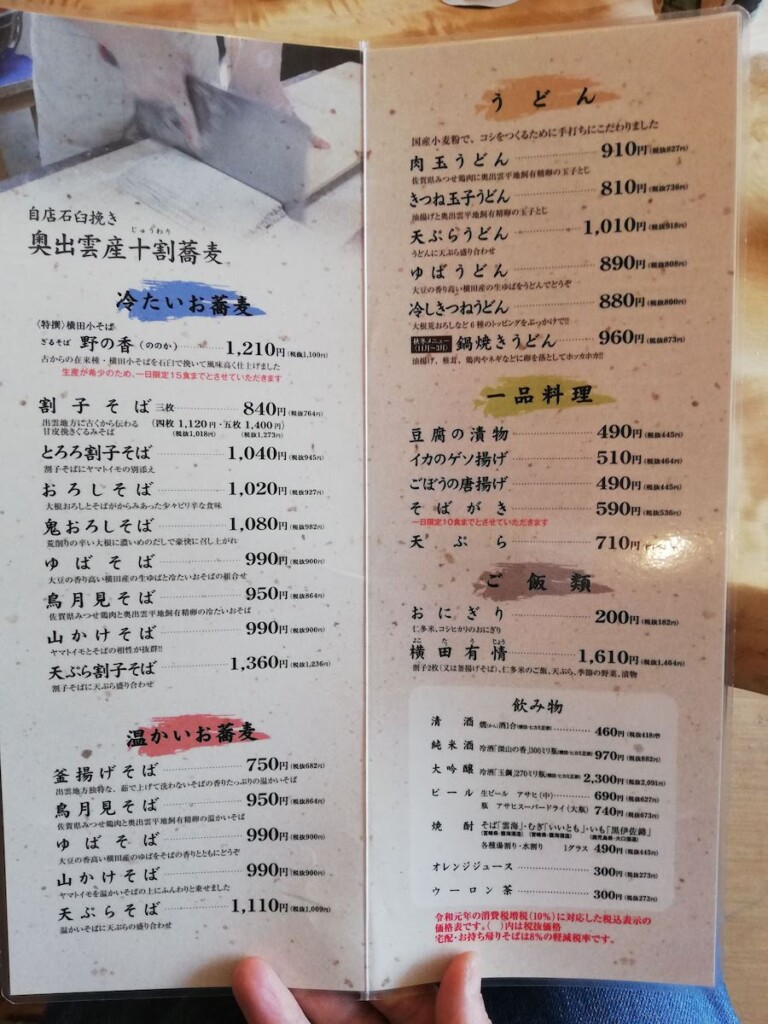 自店石臼挽き
じゅうわり
奥出雲産十割蕎麦
冷たいお蕎麦
〈特撰〉横田小そば
ざるそば 野の香(ののか) 1,210円(税抜1,100円)
古からの在来種・横田小そばを石臼で挽いて風味高く仕上げました
生産が希少のため、一日限定15食までとさせていただきます
割子そば 三枚 840円(税抜764)
出雲地方に古くから伝わる (四枚 1,120円・五枚 1,400円)
甘皮挽きぐるみそば (税抜1,018円) (税抜1,273円)
とろろ割子そば 1,040円(税抜945)
割子そばにヤマトイモの別添え
おろしそば 1,020円(税抜927)
大根おろしとそばがからみあった少々ピリ辛な食味
鬼おろしそば 1,080円(税抜982)
荒削りの辛い大根に濃いめのだしで豪快に召し上がれ
ゆばそば 990円(税抜900)
大豆の香り高い横田産の生ゆばと冷たいおそばの組合せ
鳥月見そば 950円(税抜864)
佐賀県みつせ鶏肉と奥出雲平地飼有精卵の冷たいおそば
山かけそば 990円(税抜900)
ヤマトイモとそばの相性が抜群!!
天ぷら割子そば 1,360円(税抜1,236)
割子そばに天ぷら盛り合わせ
温かいお蕎麦
釜揚げそば 750円(税抜682)
出雲地方独特な、茹で上げて洗わないそばの香りたっぷりの温かいそば
鳥月見そば 950円(税抜864)
佐賀県みつせ鶏肉と奥出雲平地飼有精卵の温かいそば
ゆばそば 990円(税抜900)
大豆の香高い横田産のゆばをそばの香りとともにどうぞ
山かけそば 990円(税抜900)
ヤマトイモを温かいそばの上にふんわりと乗せました
天ぷらそば 1,110円(税抜1,009)
温かいそばに天ぷらの盛り合わせ
うどん
国産小麦粉で、コシをつくるために手打ちにこだわりました
肉玉うどん 910円(税抜827)
佐賀県みつせ鶏肉に奥出雲平地飼有精卵の玉子とじ
きつね玉子うどん 810円(税抜736)
油揚げと奥出雲平地飼有精卵の玉子とじ
天ぷらうどん 1,010円(税抜918)
うどんに天ぷら盛り合わせ
ゆばうどん 890円(税抜808)
大豆の香り高い横田産の生ゆばをうどんでどうぞ
冷しきつねうどん 880円(税抜800)
大根荒おろしなど6種のトッピングをぶっかけで!!
秋冬メニュー(11月～3月) 鍋焼きうどん 960円(税抜873)
油揚げ、椎茸、鶏肉やネギなどに卵を落としてホッカホカ!!
一品料理
豆腐の漬物 490円(税抜445)
イカのゲソ揚げ 510円(税抜464)
ごぼうの唐揚げ 490円(税抜445)
そばがき 590円(税抜536)
一日限定10食までとさせていただきます
天ぷら 710円
ご飯類
おにぎり 200円(税抜182)
仁多米、コシヒカリのおにぎり
よこ た う じょう
横田有情 1,610円(税抜1,464)
割子2枚(又は釜揚げそば)、仁多米のご飯、天ぷら、季節の野菜、漬物
飲み物
清酒 燗(かん)酒1合 460円(税抜418)
純米酒 冷酒「深山の香」300ミリ瓶 970円(税抜882)
大吟醸 冷酒「玉鋼」270ミリ瓶 2,300円(税抜2,091)
ビール 生ビール アサヒ(中) 690円(税抜627)
瓶 アサヒスーパードライ(大瓶) 740円(税抜673)
焼酎 そば「雲海」・むぎ「いいとも」・いも「黒伊佐錦」
各種湯割り・水割り 1グラス 490円(税抜445)
オレンジジュース 300円(税抜273)
ウーロン茶 300円(税抜273)
令和元年の消費税増税(10%)に対応した税込表示の
価格表です。( )内は税抜価格
宅配・お持ち帰りそばは8%の軽減税率です。